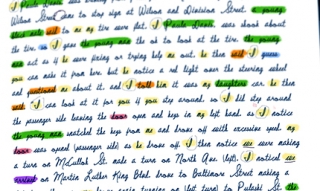 I Paula Dani was
Wilson Street came to stop sign at Wilson and Division Street. a young
black male act to as my tire were flat. I Paula Dani, was shook about
the tire. so I gave the young man the ok to look at the tire. the young
man act as if he were fixing or trying help us out. he then said I guess
you can make it from here but he notice a red light over the steering wheel
and questioned me about it. and I told him it was my daughters car. he then
said I can look at it for you if you stay around. so I did stay around
the passenger side leaving the door open and keys in my left hand. as I notice
the young man snatched the keys from me and broke off with excessive speed. my
door was opend (passenger side) as he broke off. I then notice was making
a turn on McCulloh St. made a turn on North Ave (left). I noticed
on Martin Luther King Blvd. broke to Baltimore Street making a
turning on left turn) to Pulaski St. the